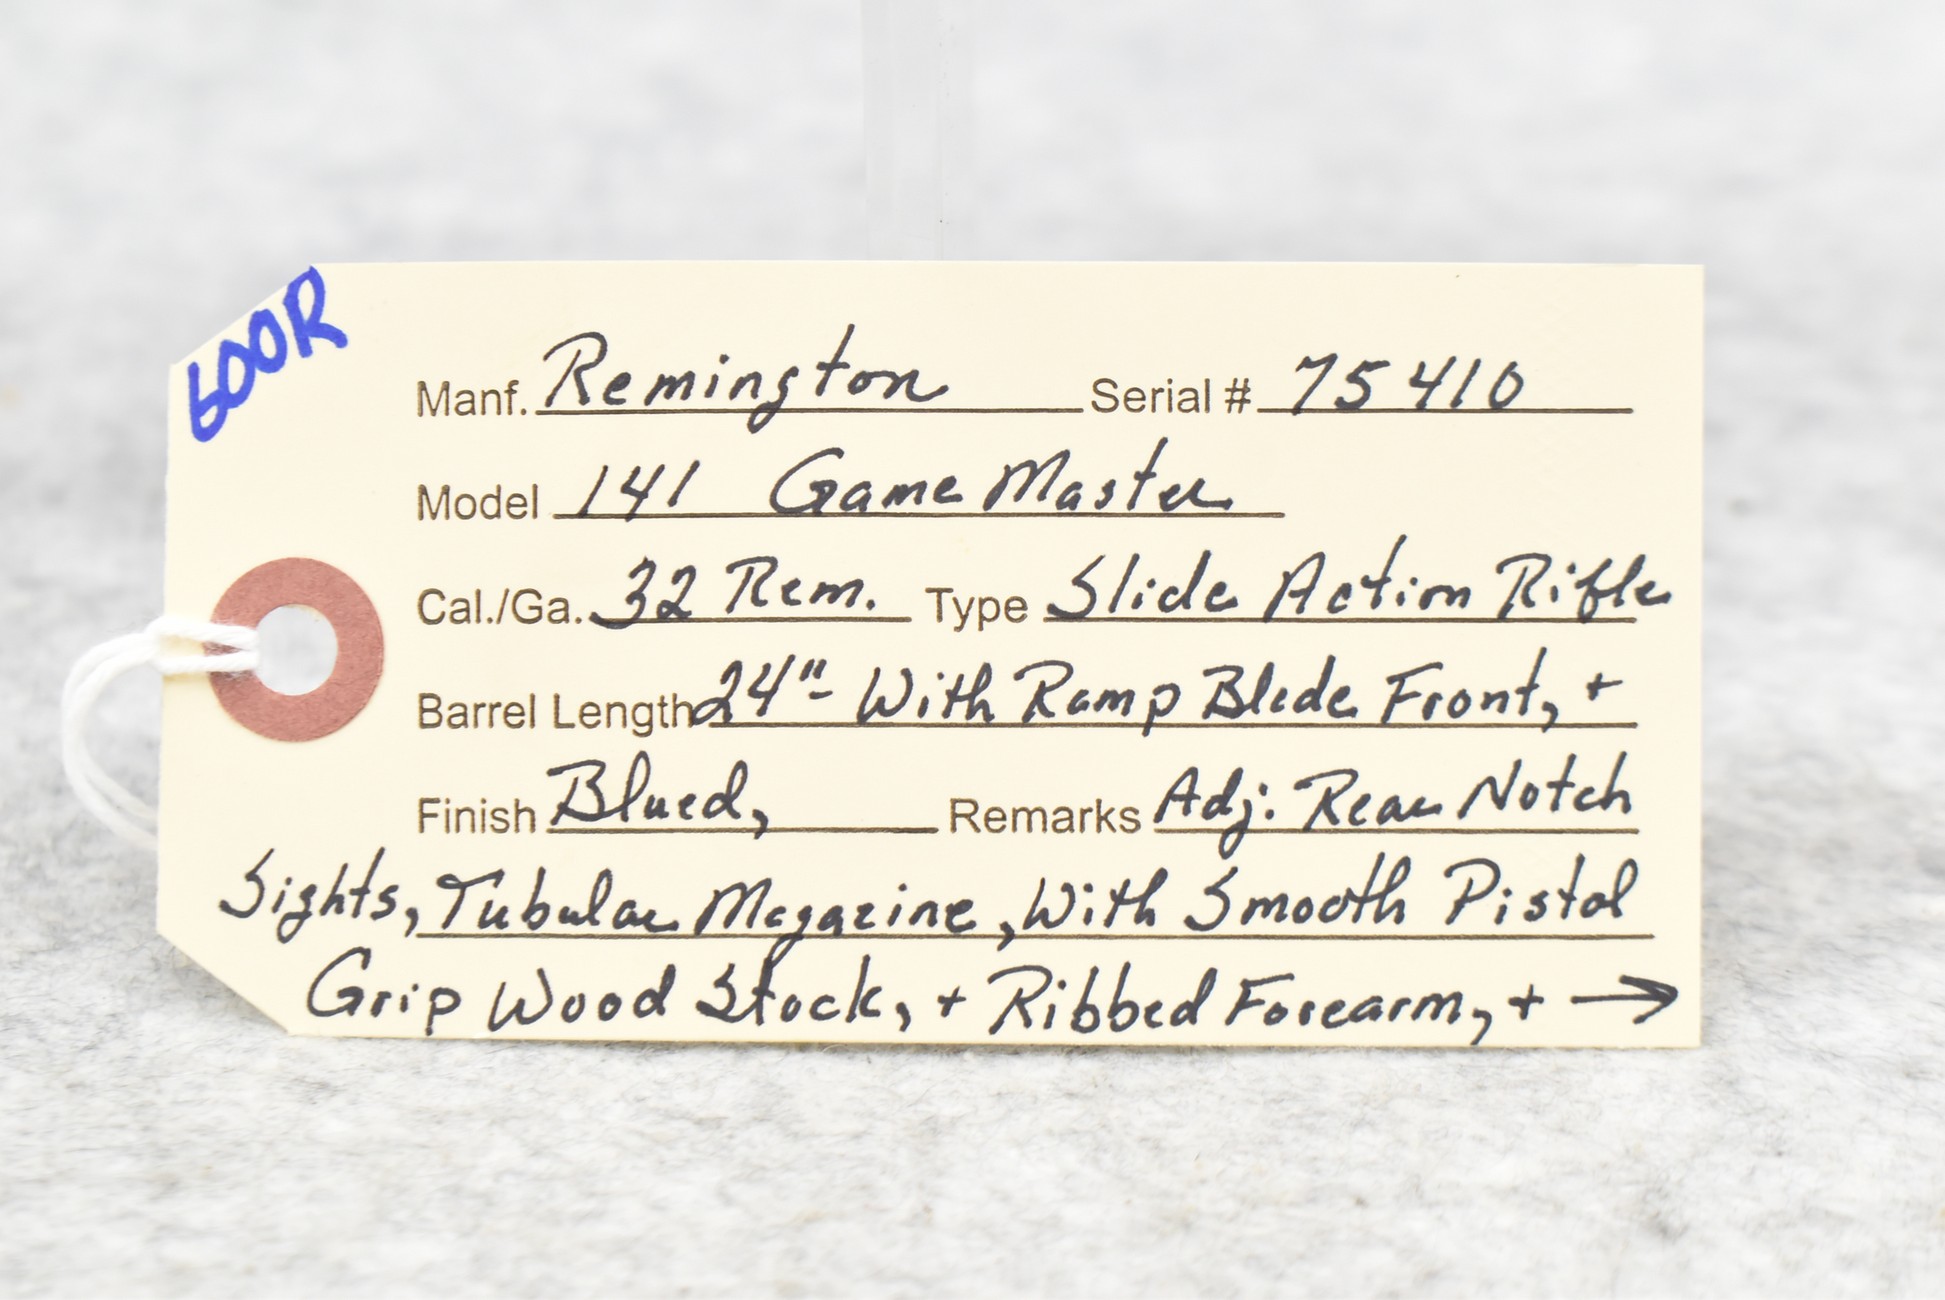 600R
Manf. Remington Serial # 75410
Model 141 GameMaster
Cal./Ga. 32 Rem. Type Slide Action Rifle
Barrel Length 24"- With Ramp Blade Front, +
Finish Blued, Remarks Adj. Rear Notch
Sights, Tubular Magazine, With Smooth Pistol
Grip Wood Stock, + Ribbed Forearm, + →